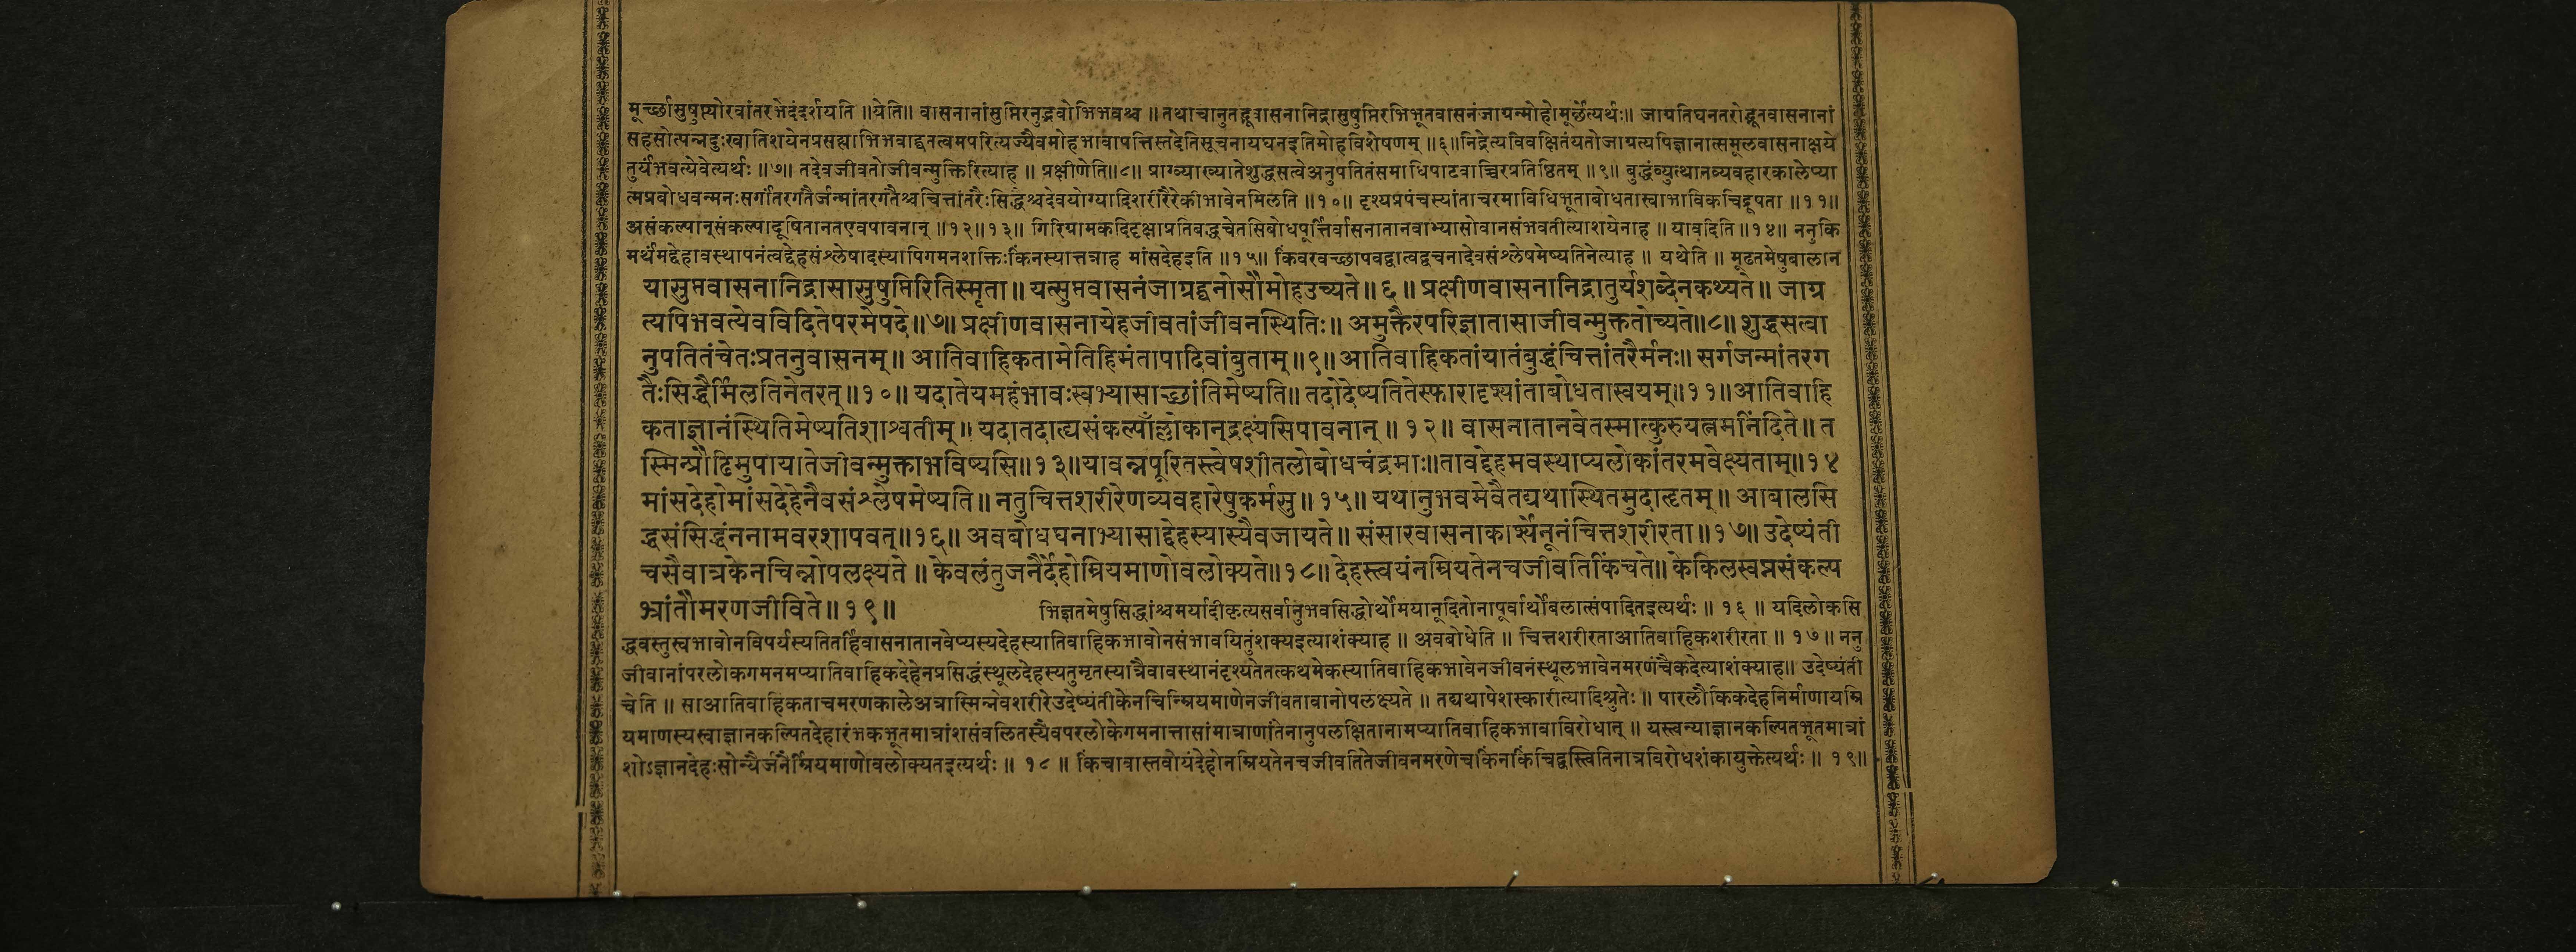 मूर्च्छासुषुप्त्योरवांतरभेदंदर्शयति ॥येति॥ वासनानांसुप्तिरनुद्भवोभिभवश्च ॥ तथाचानुतद्भूवासनानिद्रासुषुप्तिरभिभूतवासनंजाग्रन्मोहोमूर्छेत्यर्थः॥ जाग्रतिघनतरोद्भूतवासनानां
सहसोत्पन्नदुःखातिशयेनप्रसह्याभिभवाद्घनत्वमपरित्यज्यैवमोहभावापत्तिस्तदेतिसूचनायघनइतिमोहविशेषणम् ॥६॥निद्रेत्यविवक्षितंयतोजाग्रत्यपिज्ञानात्समूलवासनाक्षये
तुर्यंभवत्येवेत्यर्थः ॥७॥ तदेवजीवतोजीवन्मुक्तिरित्याह ॥ प्रक्षीणेति॥८॥ प्राग्व्याख्यातेशुद्धसत्वेअनुपतितंसमाधिपाटवाच्चिरप्रतिष्ठितम् ॥९॥ बुद्धंव्युत्थानव्यवहारकालेप्या
त्मप्रबोधवन्मनःसर्गांतरगतैर्जन्मांतरगतैश्चचित्तांतरैःसिद्धैश्चदेवयोग्यादिशरीरैरेकीभावेनमिलति ॥१०॥ दृश्यप्रपंचस्यांताचरमाविधिभूताबोधतास्वाभाविकचिद्रूपता ॥११॥
असंकल्पान्संकल्पादूषितानतएवपावनान् ॥१२॥१३॥ गिरिग्रामकदिदृक्षाप्रतिबद्धचेतसिबोधपूर्त्तिर्वासनातानवाभ्यासोवानसंभवतीत्याशयेनाह ॥ यावदिति ॥१४॥ ननुकि
मर्थंमद्देहावस्थापनंत्वद्देहसंश्लेषादस्यापिगमनशक्तिःकिंनस्यात्तत्राह मांसदेहइति ॥१५॥ किंवरवच्छापवद्वात्वद्वचनादेवसंश्लेषमेष्यतिनेत्याह ॥ यथेति ॥ मूढतमेषुबालान
यासुप्तवासनानिद्रासासुषुप्तिरितिस्मृता॥ यत्सुप्तवासनंजाग्रद्घनोसौमोहउच्यते॥६॥ प्रक्षीणवासनानिद्रातुर्यशब्देनकथ्यते॥ जाग्र
त्यपिभवत्येवविदितेपरमेपदे॥७॥ प्रक्षीणवासनायेहजीवतांजीवनस्थितिः॥ अमुक्तैरपरिज्ञातासाजीवन्मुक्ततोच्यते॥८॥ शुद्धसत्वा
नुपतितंचेतःप्रतनुवासनम्॥ आतिवाहिकतामेतिहिमंतापादिवांबुताम्॥९॥आतिवाहिकतांयातंबुद्धंचित्तांतरैर्मनः॥ सर्गजन्मांतरग
तैःसिद्धैर्मिलतिनेतरत्॥१०॥ यदातेयमहंभावःस्वभ्यासाच्छांतिमेष्यति॥ तदोदेष्यतितेस्फारादृश्यांताबोधतास्वयम्॥११॥आतिवाहि
कताज्ञानंस्थितिमेष्यतिशाश्वतीम्॥ यदातदाह्यसंकल्पाँल्लोकान्द्रक्ष्यसिपावनान्॥ १२॥ वासनातानवेतस्मात्कुरुयत्नमनिंदिते॥ त
स्मिन्प्रौढिमुपायातेजीवन्मुक्ताभविष्यसि॥१३॥यावन्नपूरितस्त्वेषशीतलोबोधचंद्रमाः॥तावद्देहमवस्थाप्यलोकांतरमवेक्ष्यताम्॥१४
मांसदेहोमांसदेहेनैवसंश्लेषमेष्यति॥ नतुचित्तशरीरेणव्यवहारेषुकर्मसु॥१५॥ यथानुभवमेवैतद्यथास्थितमुदाहृतम्॥ आबालसि
द्धसंसिद्धंननामवरशापवत्॥१६॥ अवबोधघनाभ्यासाद्देहस्यास्यैवजायते॥ संसारवासनाकार्श्येनूनंचित्तशरीरता॥१७॥ उदेष्यंती
चसैवात्रकेनचिन्नोपलक्ष्यते॥ केवलंतुजनैर्देहोम्रियमाणोवलोक्यते॥१८॥ देहस्त्वयंनम्रियतेनचजीवतिकिंचते॥ केकिलस्वप्नसंकल्प
भ्रांतौमरणजीविते॥१९॥
भिज्ञतमेषुसिद्धांश्चमर्यादीकृत्यसर्वानुभवसिद्धोर्थोमयानूदितोनापूर्वार्थोबलात्संपादितइत्यर्थः ॥ १६ ॥ यदिलोकसि
द्धवस्तुस्वभावोनविपर्यस्यतितर्हिवासनातानवेप्यस्यदेहस्यातिवाहिकभावोनसंभावयितुंशक्यइत्याशंक्याह ॥ अवबोधेति ॥ चित्तशरीरताआतिवाहिकशरीरता ॥ १७॥ ननु
जीवानांपरलोकगमनमप्यातिवाहिकदेहेनप्रसिद्धंस्थूलदेहस्यतुमृतस्यात्रैवावस्थानंदृश्यतेतत्कथमेकस्यातिवाहिकभावेनजीवनंस्थूलभावेनमरणंचैकदेत्याशंक्याह॥ उदेष्यंती
चेति ॥ साआतिवाहिकताचमरणकालेअत्रास्मिन्नेवशरीरेउदेष्यंतीकेनचिन्म्रियमाणेनजीवतावानोपलक्ष्यते ॥ तद्यथापेशस्कारीत्यादिश्रुतेः ॥ पारलौकिकदेहनिर्माणायम्रि
यमाणस्यस्वाज्ञानकल्पितदेहारंभकभूतमात्रांशसंवलितस्यैवपरलोकेगमनात्तासांमात्राणांतेनानुपलक्षितानामप्यातिवाहिकभावाविरोधात् ॥ यस्त्वन्याज्ञानकल्पितभूतमात्रां
शोऽज्ञानदेहःसोन्यैर्जनैर्म्रियमाणोवलोक्यतइत्यर्थः ॥ १८ ॥ किंचावास्तवोयंदेहोनम्रियतेनचजीवतितेजीवनमरणेचकिंनकिंचिद्वस्त्वितिनात्रविरोधशंकायुक्तेत्यर्थः ॥ १९॥